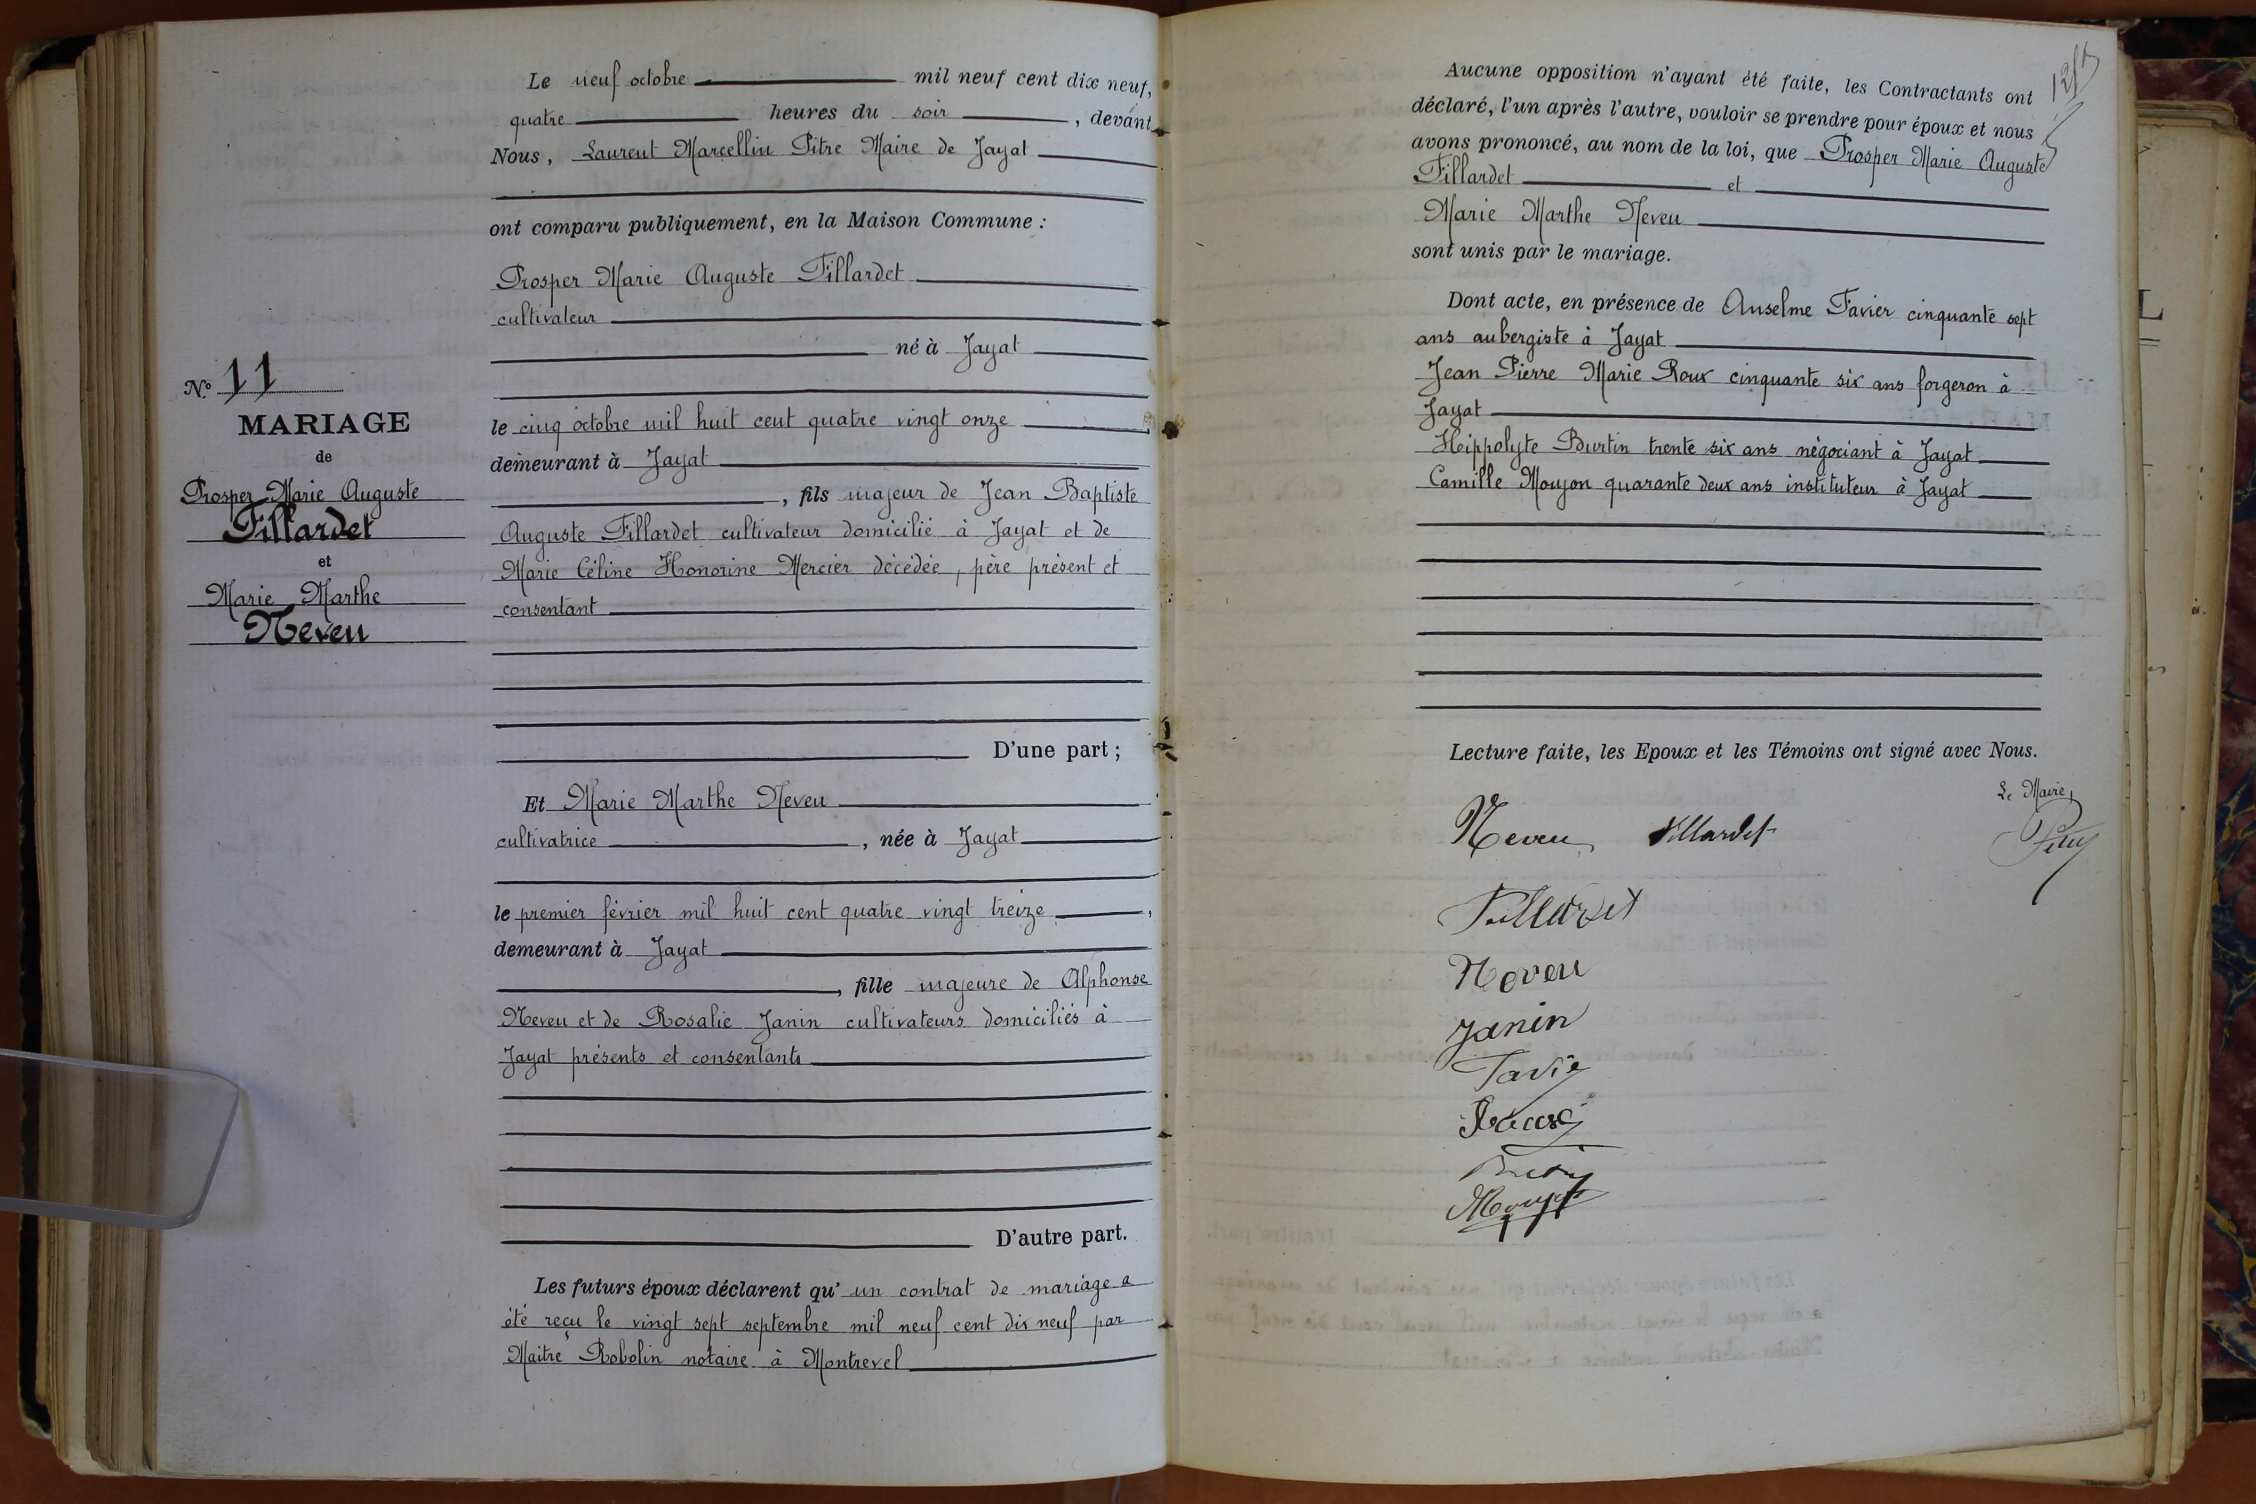 Le neuf octobre mil neuf cent dix neuf,
quatre heures du soir, devant
Nous, Laurent Marcellin Pitre Maire de Jayat
ont comparu publiquement, en la Maison Commune :
Prosper Marie Auguste Fillardet
cultivateur
né à Jayat
le cinq octobre mil huit cent quatre vingt onze
demeurant à Jayat
, fils majeur de Jean Baptiste
Auguste Fillardet cultivateur domicilié à Jayat et de
Marie Céline Honorine Mercier décédée, père présent et
consentant
D'une part ;
Et Marie Marthe Neveu
cultivatrice, née à Jayat
le premier février mil huit cent quatre vingt treize,
demeurant à Jayat
, fille majeure de Alphonse
Neveu et de Rosalie Janin cultivateurs domiciliés à
Jayat présents et consentants
D'autre part.
Les futurs époux déclarent qu'un contrat de mariage a
été reçu le vingt sept septembre mil neuf cent dix neuf par
Maitre Robolin notaire à Montrevel
N° 11
MARIAGE
de
Prosper Marie Auguste
Fillardet
et
Marie Marthe
Neveu
Aucune opposition n'ayant été faite, les Contractants ont
déclaré, l'un après l'autre, vouloir se prendre pour époux et nous
avons prononcé, au nom de la loi, que Prosper Marie Auguste
Fillardet et
Marie Marthe Neveu
sont unis par le mariage.
Dont acte, en présence de Anselme Favier cinquante sept
ans aubergiste à Jayat
Jean Pierre Marie Roux cinquante six ans forgeron à
Jayat
Heippolyte Burtin trente six ans négociant à Jayat
Camille Moujon quarante deux ans instituteur à Jayat
Lecture faite, les Epoux et les Témoins ont signé avec Nous.
Le Maire,
Neveu Fillardet
Fillardet
Neveu
Janin